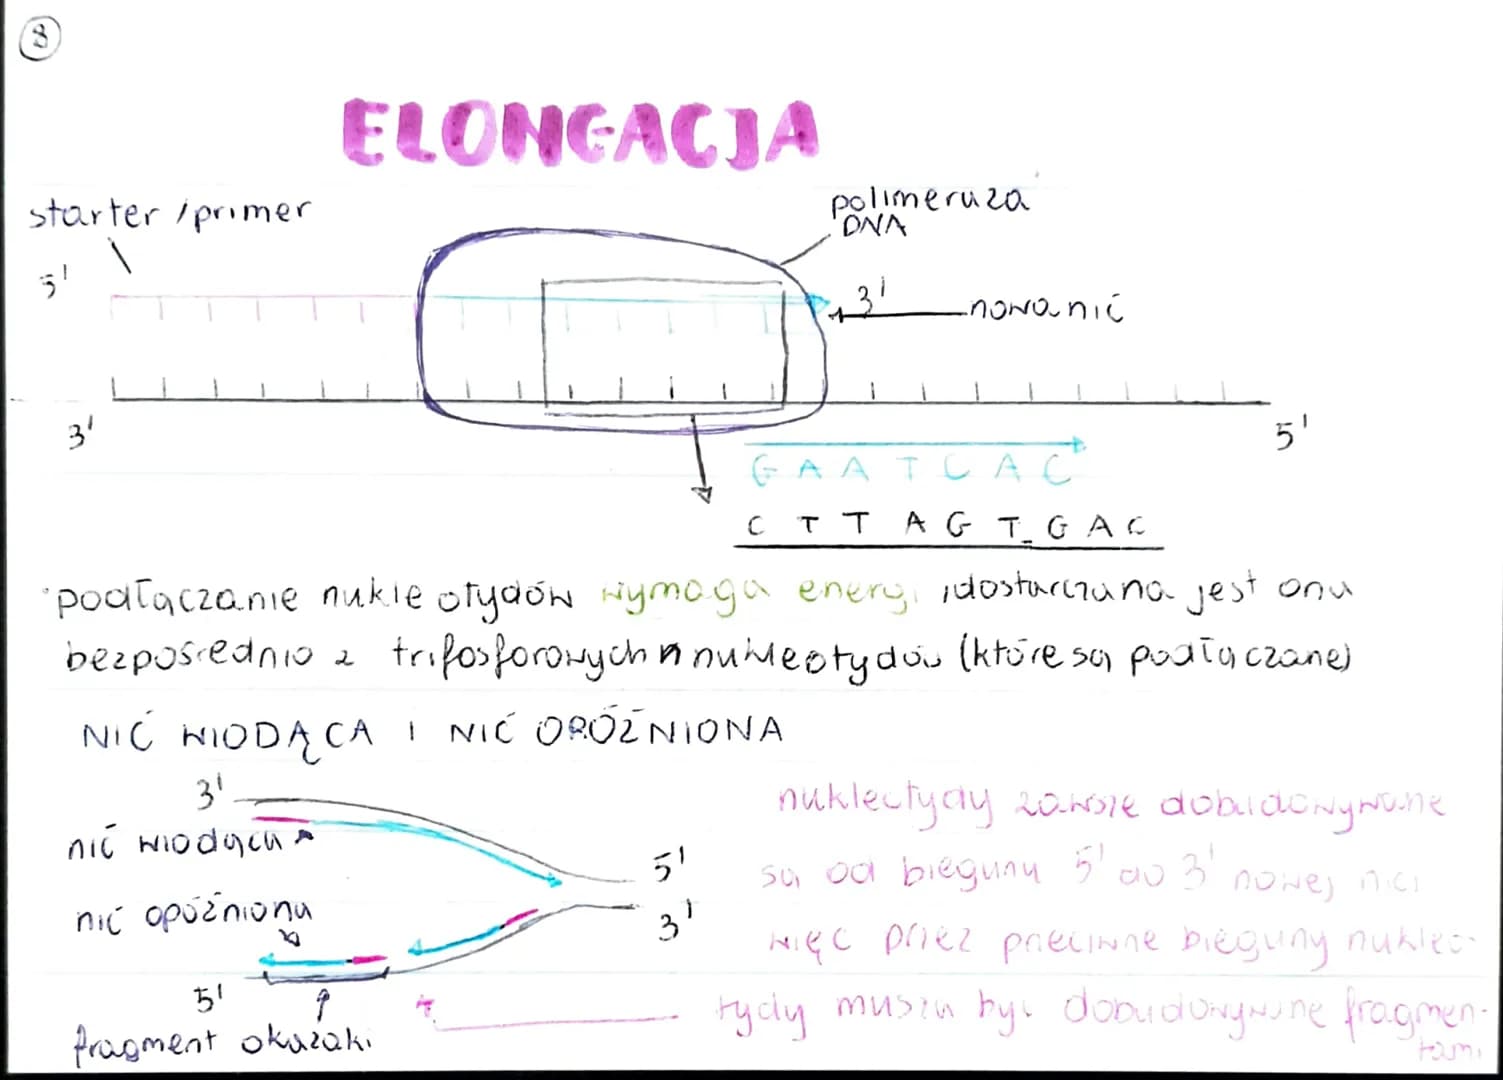 8
ELONGACJA
starter / primer
polimeraza
DNA
5'
3'
nowa nić
3'
5'
G A A T C A C
C T T A G T G A C
podłączanie nukleotydów wymaga energi, dostarczana jest ona
bezpośrednio z trifosforowych n nukleotydów (które są podłączane)
NIĆ WIODĄCA I NIĆ OPÓŹNIONA
3'
nić wiodąca
5'
nić opóźniona
3'
5'
fragment okazaki
nukleotydy zawsze dobudowywane
są od bieguna 5' do 3' nowej nici
więc przez przeciwne bieguny nukleo-
tydy muszą być dobudowywane fragmen-
tami